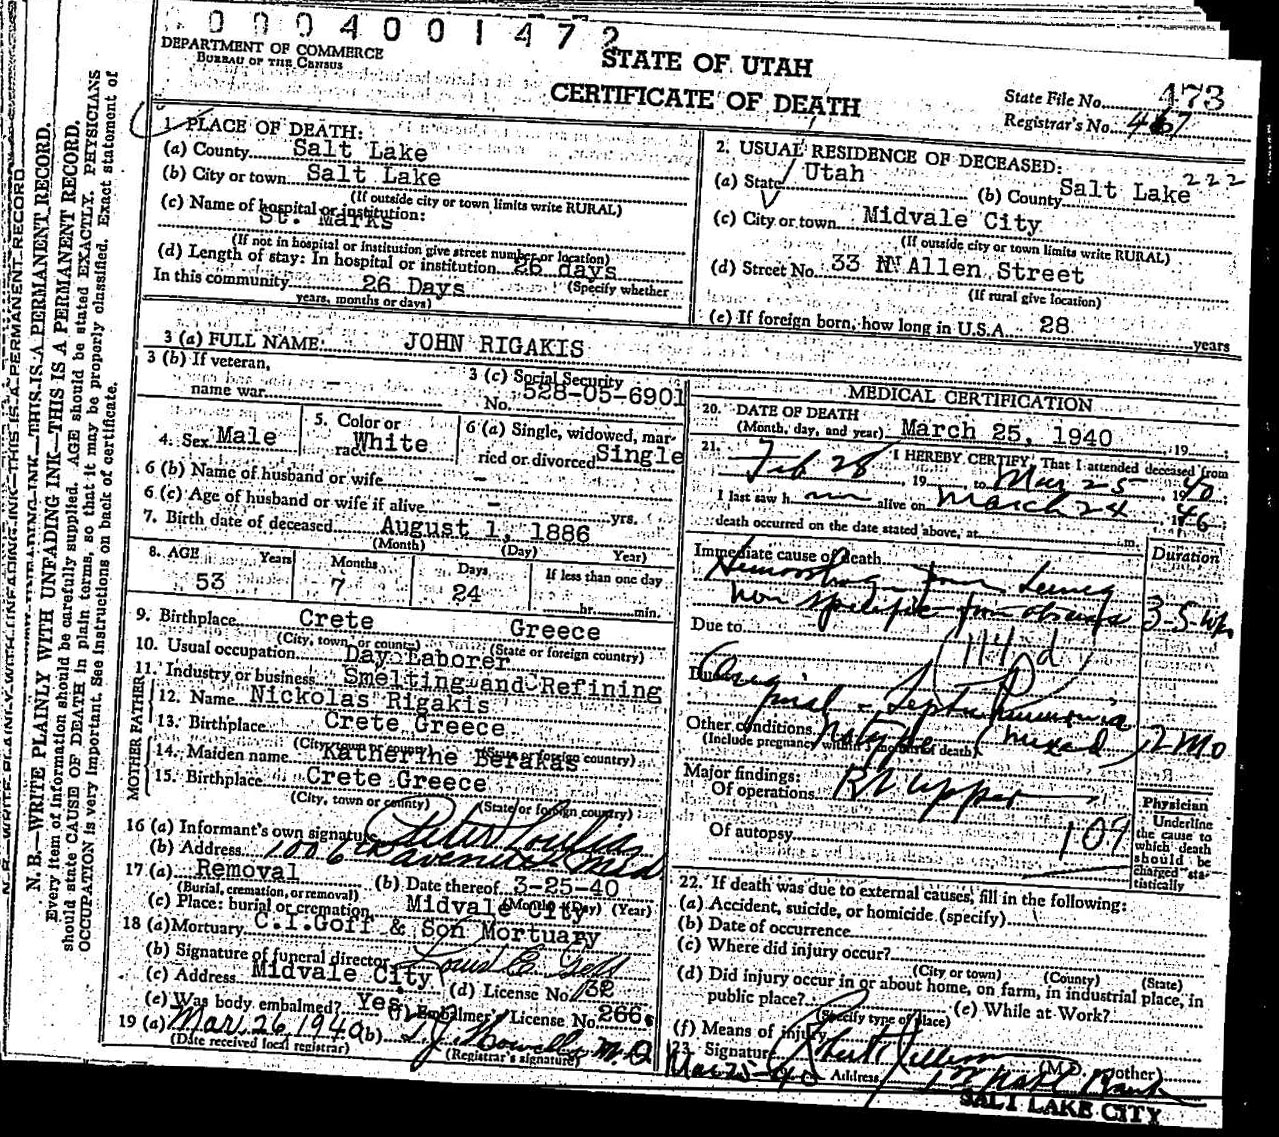 0004001472
DEPARTMENT OF COMMERCE
BUREAU OF THE CENSUS
STATE OF UTAH
CERTIFICATE OF DEATH
State File No. 473
Registrar's No. 467
N. B.—WRITE PLAINLY WITH UNFADING INK—THIS IS A PERMANENT RECORD.
Every item of information should be carefully supplied. AGE should be stated EXACTLY. PHYSICIANS
should state CAUSE OF DEATH in plain terms, so that it may be properly classified. Exact statement of
OCCUPATION is very important. See instructions on back of certificate.
1. PLACE OF DEATH:
(a) County Salt Lake
(b) City or town Salt Lake
(If outside city or town limits write RURAL)
(c) Name of hospital or institution:
St. Marks
(If not in hospital or institution give street number or location)
(d) Length of stay: In hospital or institution 26 days
(Specify whether
In this community 26 Days
years, months or days)
2. USUAL RESIDENCE OF DECEASED:
(a) State Utah (b) County Salt Lake 222
(c) City or town Midvale City
(If outside city or town limits write RURAL)
(d) Street No. 33 N Allen Street
(If rural give location)
(e) If foreign born, how long in U.S.A. 28 years
3 (a) FULL NAME: JOHN RIGAKIS
3 (b) If veteran, name war -
3 (c) Social Security No. 528-05-6901
4. Sex Male
5. Color or race White
6 (a) Single, widowed, married or divorced Single
6 (b) Name of husband or wife -
6 (c) Age of husband or wife if alive - yrs.
7. Birth date of deceased August 1, 1886
(Month) (Day) Year)
8. AGE Years Months Days If less than one day
53 7 24 hr. min.
9. Birthplace Crete Greece
(City, town or county) (State or foreign country)
10. Usual occupation Day Laborer
11. Industry or business Smelting and Refining
FATHER
12. Name Nickolas Rigakis
13. Birthplace Crete Greece
(City, town or county) (State or foreign country)
MOTHER
14. Maiden name Katherine Berakas
15. Birthplace Crete Greece
(City, town or county) (State or foreign country)
16 (a) Informant's own signature Peter
(b) Address 100 6th avenue Mid
17 (a) Removal (b) Date thereof 3-25-40
(Burial, cremation, or removal) (Month) (Day) (Year)
(c) Place: burial or cremation Midvale City
18 (a) Mortuary C.I.Goff & Son Mortuary
(b) Signature of funeral director Louis E. Goff
(c) Address Midvale City (d) License No. 132
(e) Was body embalmed? Yes (f) Embalmer License No. 266
19 (a) Mar. 26, 1940 (b) T.J. Howells M.D.
(Date received local registrar) (Registrar's signature)
MEDICAL CERTIFICATION
20. DATE OF DEATH
(Month, day, and year) March 25, 1940 19
21. I HEREBY CERTIFY, That I attended deceased from
Feb 28, 19 to Mar 25, 1940
I last saw him alive on March 24 1940
death occurred on the date stated above, at m.
Immediate cause of death Duration
Hemorrhage from Lung
non specific 3-5 wks
Due to
114 d
Due to
Septic Pneumonia
Other conditions No type (mixed) 2 Mo
(Include pregnancy within 3 months of death)
Major findings:
Of operations Rt upper
Of autopsy 109
Physician
Underline
the cause to
which death
should be
charged sta-
tistically
22. If death was due to external causes, fill in the following:
(a) Accident, suicide, or homicide (specify)
(b) Date of occurrence
(c) Where did injury occur?
(City or town) (County) (State)
(d) Did injury occur in or about home, on farm, in industrial place, in
public place? (e) While at Work?
(Specify type of place)
(f) Means of injury
23. Signature (M.D. other)
Mar 25-40 Address Natl Bank
SALT LAKE CITY